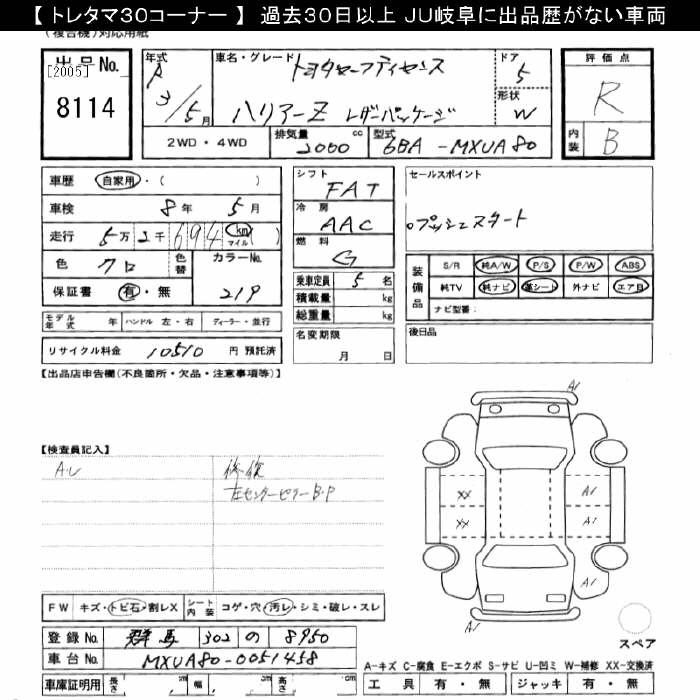 【トレタマ30コーナー】 過去30日以上 JU岐阜に出品歴がない車両
(複合機)対応用紙
出品No.
[2005]
8114
年式
R
3/5月
車名・グレード
トヨタセーフティセンス
ハリアーZ レザーパッケージ
ドア
5
形状
W
評価点
R
内装
B
2WD・4WD
排気量 2000 cc
型式 6BA-MXUA80
車歴 自家用・( )
車検 8年 5月
走行 5万2千694 km マイル( )
色 クロ 色替 カラーNo. 219
保証書 有・無
モデル年式 年 ハンドル 左・右 ディーラー・並行
リサイクル料金 10510 円 預託済
シフト
FAT
冷房
AAC
燃料
G
乗車定員 5 名
積載量 kg
総重量 kg
名変期限
月 日
セールスポイント
プッシュスタート
装備品
S/R 純A/W P/S P/W ABS
純TV 純ナビ 革シート 外ナビ エアB
ナビ型番:
後日品
【出品店申告欄(不良箇所・欠品・注意事項等)】
【検査員記入】
AU
修復
左センターピラーB・P
A1
XX
XX
A1
A1
A1
A1
スペア
FW キズ・トビ石・割レX シート内装 コゲ・穴・汚レ・シミ・破レ・スレ
登録No. 群馬 302 の 8950
車台No. MXUA80-0051458
車庫証明用 長さ cm 幅 cm 高さ cm
A-キズ C-腐食 E-エクボ S-サビ U-凹ミ W-補修 XX-交換済
工具 有・無 ジャッキ 有・無